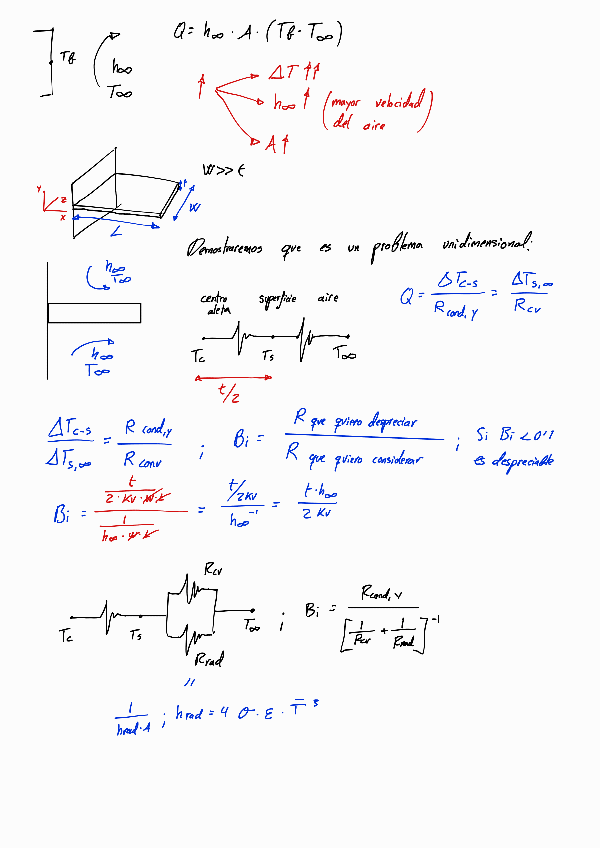 Tb
h∞
T∞
Q = h∞ · A · (Tb - T∞)
↑
ΔT ↑↑
h∞ ↑ (mayor velocidad
del aire)
A ↑
Y
Z
X
t
W
L
W >> t
Demostraremos que es un problema unidimensional:
h∞
T∞
h∞
T∞
centro aleta superficie aire
Tc Ts T∞
t/2
Q = ΔTc-s / Rcond,y = ΔTs,∞ / Rcv
ΔTc-s / ΔTs,∞ = R cond,y / R conv ; Bi = R que quiero despreciar / R que quiero considerar ; Si Bi < 0'1
es despreciable
Bi = (t / 2·Kv·W·L) / (1 / h∞·W·L) = (t/2Kv) / h∞⁻¹ = t·h∞ / 2Kv
Rcv
Tc Ts T∞
Rrad
; Bi = Rcond,v / [1/Rcv + 1/Rrad]⁻¹
"
1 / hrad·A ; hrad = 4 σ · ε · T̄ ³